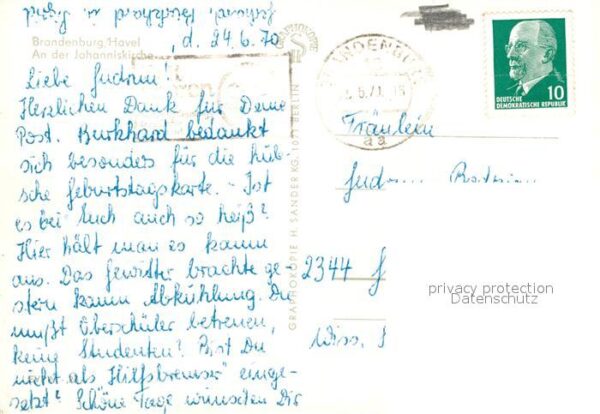 Brandenburg/Havel
An der Johanniskirche
, d. 24.6.70
Liebe Gudrun!
Herzlichen Dank für Deine
Post. Burkhard bedankt
sich besonders für die hüb-
sche Geburtstagskarte. - Ist
es bei Euch auch so heiß?
Hier hält man es kaum
aus. Das Gewitter brachte ge-
stern kaum Abkühlung. Du
mußt Oberschüler betreuen,
keine Studenten? Bist Du
nicht als "Hilfsbremser" einge-
setzt? Schöne Tage wünschen Dir
Burkhard u.
GRAPHOKOPIE H. SANDER KG, 1071 BERLIN
BRANDENBURG
aa
DEUTSCHE
DEMOKRATISCHE REPUBLIK
10
Fräulein
Gudrun
2344
privacy protection
Datenschutz